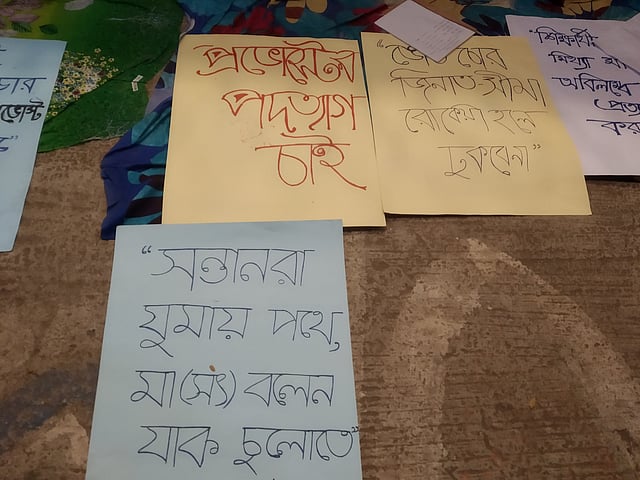 চার
প্রভোস্টের
পদত্যাগ
চাই
জিনাত সীমা
রোকেয়া হলে
ঢুকবেনা"
"শিক্ষার্থী
মিথ্যা মা
অবিলম্বে
প্রত্য
কর
"সন্তানরা
ঘুমায় পথে,
মা (সং) বলেন
যাক চুলোতে"